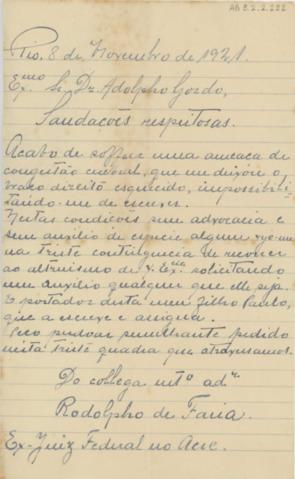 AG 8.2.2.222
Rio, 8 de Novembro de 1921.
Exmo Sr. Dr. Adolpho Gordo,
Saudações respeitosas.
Acabo de soffrer uma ameaça de
congestão cerebral, que me deixou o
braço direito esquecido, impossibili-
tando-me de escrever.
Nestas condições sem advocacia e
sem auxilio de especie alguma vejo-me
na triste contingencia de recorrer
ao altruismo de V. Excia solicitando
um auxilio qualquer que elle seja.
O portador desta meu filho Paulo,
que a escreve e assigna.
Peço perdoar semelhante pedido
nesta triste quadra que atravessamos.
Do collega mto adr
Rodolpho de Faria.
Ex-Juiz Federal no Acre.